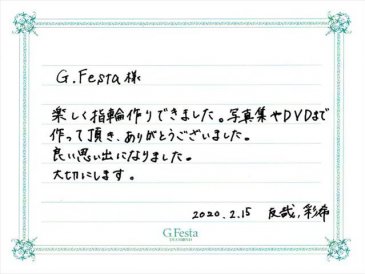 G.Festa様
楽しく指輪作りできました。写真集やDVDまで
作って頂き、ありがとうございました。
良い思い出になりました。
大切にします。
2020.2.15 友哉,彩希
G.Festa